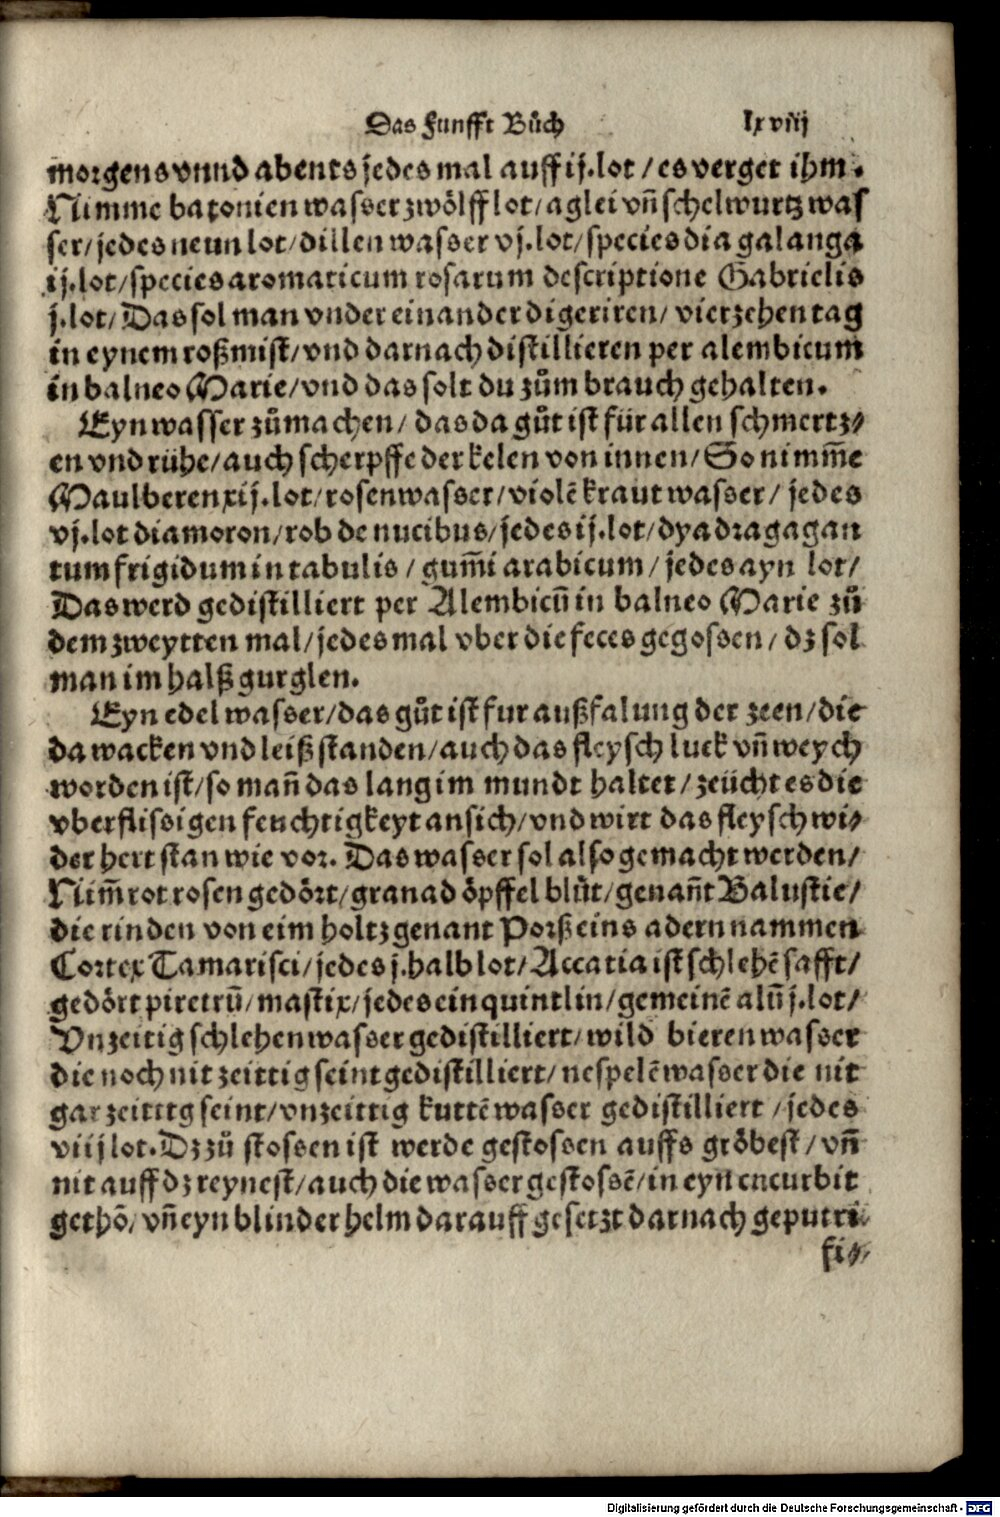 Das Funfft Bůch lxviij
morgens vnnd abents jedes mal auff ij. lot / es verget ihm.
Nimme batonien wasser zwölff lot / aglei vñ schelwurtz was
ser / jedes neun lot / dillen wasser vj. lot / species dia galanga
ij. lot / species aromaticum rosarum descriptione Gabrielis
j. lot / Das sol man vnder einander digeriren / vierzehen tag
in eynem roßmist / vnd darnach distillieren per alembicum
in balneo Marie / vnd das solt du zům brauch gehalten.
Eyn wasser zůmachen / das da gůt ist für allen schmertz⸗
en vnd rühe / auch scherpffe der kelen von innen / So nim̃e
Maulberen xij. lot / rosenwasser / violẽ kraut wasser / jedes
vj. lot diamoron / rob de nucibus / jedes ij. lot / dyadragagan
tum frigidum in tabulis / gum̃i arabicum / jedes ayn lot /
Das werd gedistilliert per Alembicũ in balneo Marie zů
dem zweytten mal / jedes mal vber die feces gegossen / dz sol
man im halß gurglen.
Eyn edel wasser / das gůt ist fur außfalung der zeen / die
da wacken vnd leiß standen / auch das fleysch luck vñ weych
worden ist / so mañ das lang im mundt haltet / zeücht es die
vberflissigen feuchtigkeyt an sich / vnd wirt das fleysch wi⸗
der hert stan wie vor. Das wasser sol also gemacht werden /
Nim̃ rot rosen gedört / granad öpffel blůt / genañt Balustie /
die rinden von eim holtz genant Porß eins adern nammen
Cortex Tamarisci / jedes j. halb lot / Accatia ist schlehẽ safft /
gedört piretrũ / mastix / jedes ein quintlin / gemeinẽ alũ j. lot /
Vnzeitig schlehen wasser gedistilliert / wild bieren wasser
die noch nit zeittig seint gedistilliert / nespelẽ wasser die nit
gar zeitttg seint / vnzeittig kuttẽ wasser gedistilliert / jedes
viij lot. Dz zů stossen ist werde gestossen auffs gröbest / vñ
nit auff dz reynest / auch die wasser gestossẽ / in eyn cucurbit
gethõ / vñ eyn blinder helm darauff gesetzt darnach geputri⸗
fi⸗
Digitalisierung gefördert durch die Deutsche Forschungsgemeinschaft - DFG